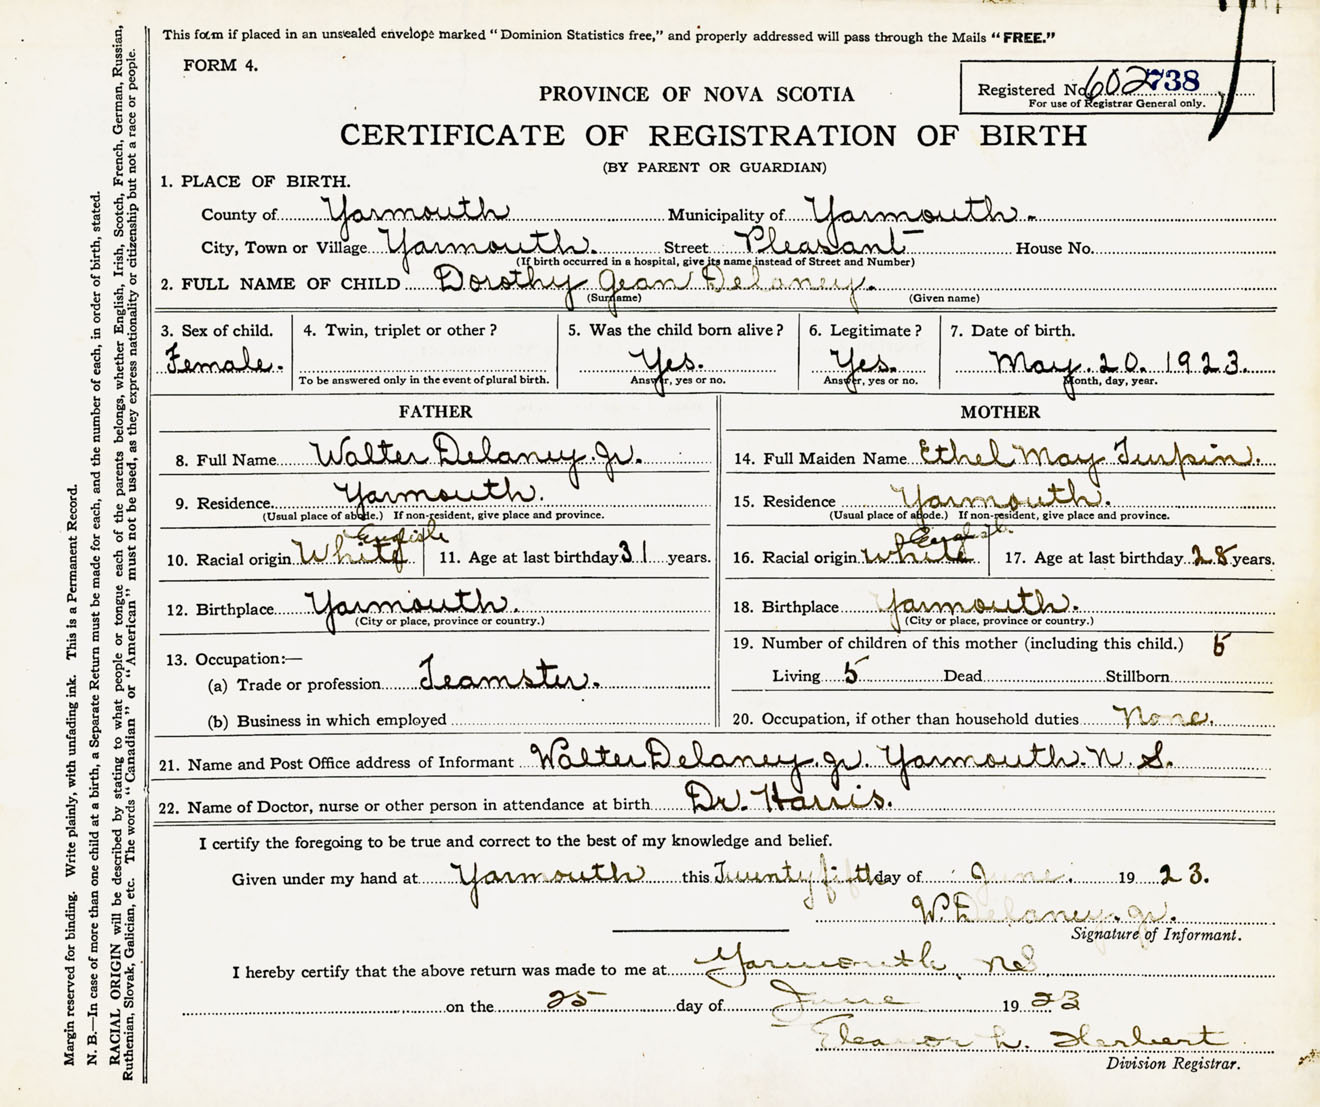 This form if placed in an unsealed envelope marked "Dominion Statistics free," and properly addressed will pass through the Mails "FREE."
FORM 4.
Registered No. 602738
For use of Registrar General only.
PROVINCE OF NOVA SCOTIA
CERTIFICATE OF REGISTRATION OF BIRTH
(BY PARENT OR GUARDIAN)
1. PLACE OF BIRTH.
County of Yarmouth Municipality of Yarmouth.
City, Town or Village Yarmouth. Street Pleasant House No.
(If birth occurred in a hospital, give its name instead of Street and Number)
2. FULL NAME OF CHILD Dorothy Jean Delaney.
(Surname) (Given name)
3. Sex of child. 4. Twin, triplet or other? 5. Was the child born alive? 6. Legitimate? 7. Date of birth.
Female. Yes. Yes. May. 20. 1923.
To be answered only in the event of plural birth. Answer, yes or no. Answer, yes or no. Month, day, year.
FATHER MOTHER
8. Full Name Walter Delaney. Jr. 14. Full Maiden Name Ethel May Turpin.
9. Residence Yarmouth. 15. Residence Yarmouth.
(Usual place of abode.) If non-resident, give place and province. (Usual place of abode.) If non-resident, give place and province.
English English
10. Racial origin White 11. Age at last birthday 31 years. 16. Racial origin White 17. Age at last birthday 28 years.
12. Birthplace Yarmouth. 18. Birthplace Yarmouth.
(City or place, province or country.) (City or place, province or country.)
13. Occupation:— 19. Number of children of this mother (including this child.) 5
(a) Trade or profession Teamster. Living 5 Dead Stillborn
(b) Business in which employed 20. Occupation, if other than household duties None.
21. Name and Post Office address of Informant Walter Delaney. Jr Yarmouth. N. S.
22. Name of Doctor, nurse or other person in attendance at birth Dr. Harris.
I certify the foregoing to be true and correct to the best of my knowledge and belief.
Given under my hand at Yarmouth this Twenty fifth day of June. 1923.
W. Delaney. Jr.
Signature of Informant.
I hereby certify that the above return was made to me at Yarmouth, NS
on the 25 day of June 1923
Eleanor L. Herbert
Division Registrar.
Margin reserved for binding. Write plainly, with unfading ink. This is a Permanent Record.
N. B.—In case of more than one child at a birth, a Separate Return must be made for each, and the number of each, in order of birth, stated.
RACIAL ORIGIN will be described by stating to what people or tongue each of the parents belongs, whether English, Irish, Scotch, French, German, Russian,
Ruthenian, Slovak, Galician, etc. The words "Canadian" or "American" must not be used, as they express nationality or citizenship but not a race or people.